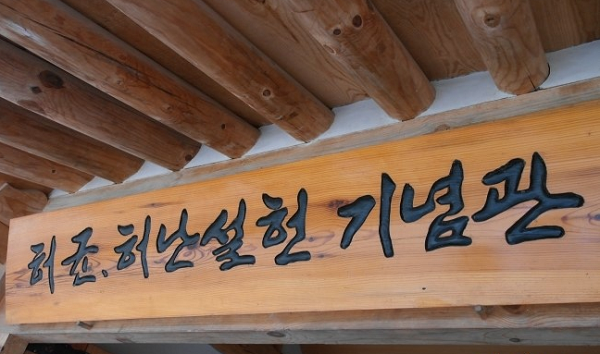 허균.허난설헌 기념관